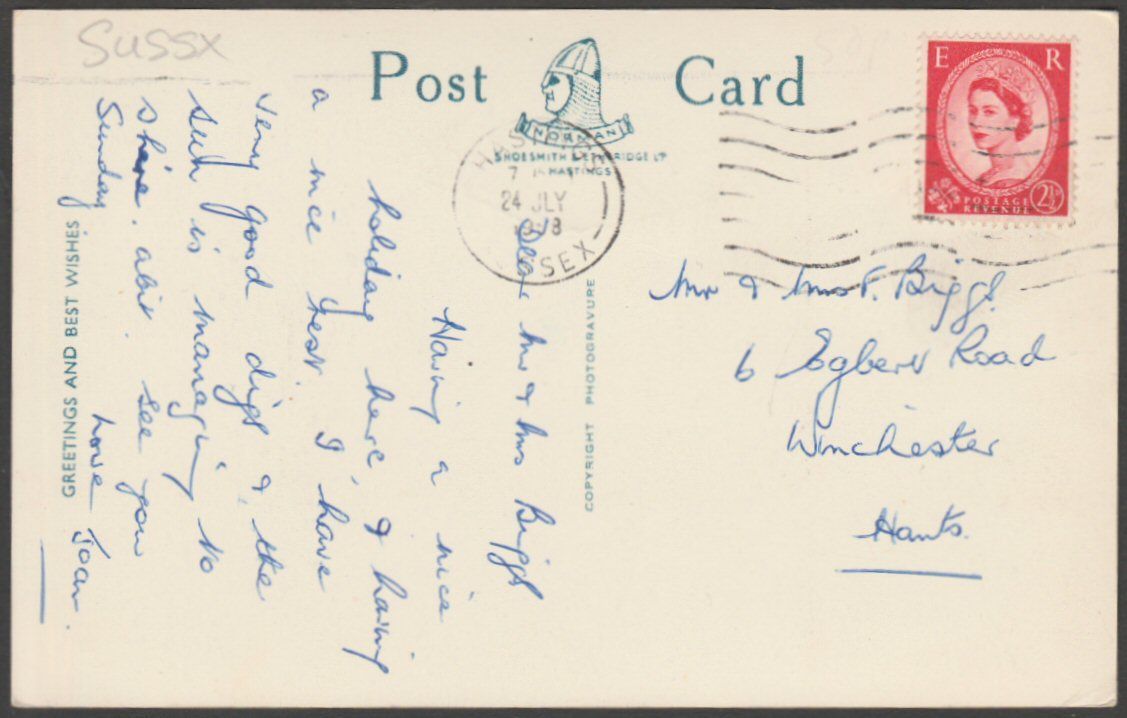 Sussx
Post Card
NORMAN
SHOESMITH & ETHERIDGE LTD
HASTINGS
HAST
24 JLY
SSEX
E R
POSTAGE
REVENUE
2½
Mr & Mrs F. Biggs.
6 Egbert Road
Winchester
Hants.
COPYRIGHT PHOTOGRAVURE
Dear Mr & Mrs Biggs
Having a nice
holiday here, & having
a nice rest. I have
very good digs & the
sun is managing to
shine abit. See you
Sunday Love Joan.
GREETINGS AND BEST WISHES